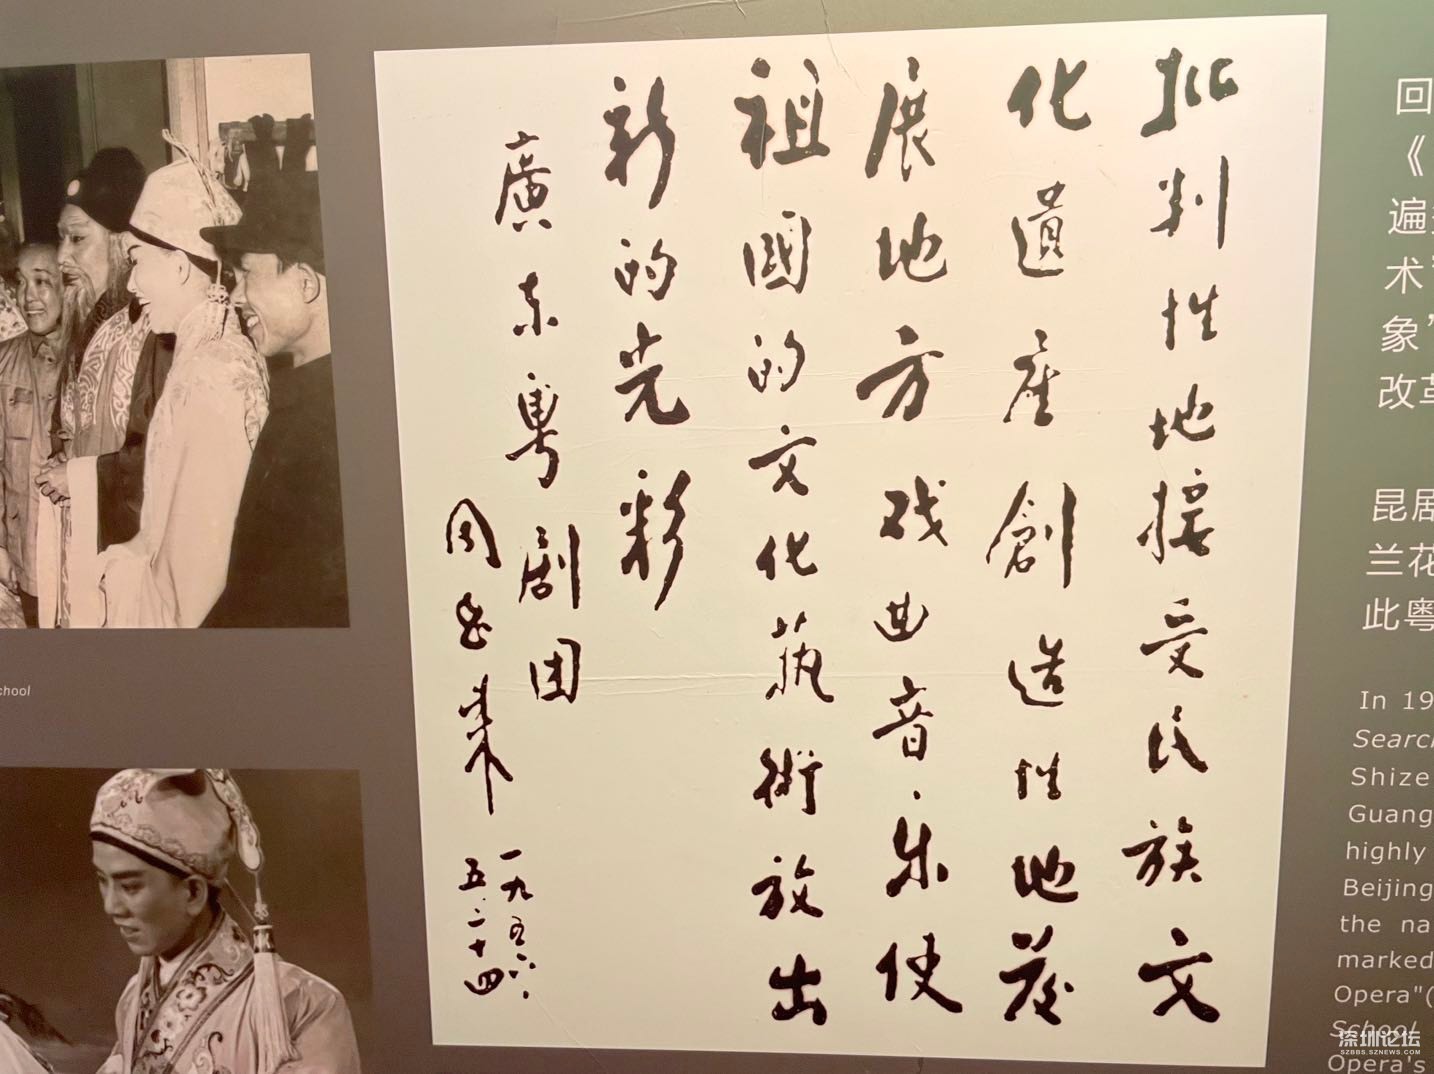 批判性地接受民族文
化遺産創造性地發
展地方戏曲音乐使
祖國的文化藝術放出
新的光彩
廣东粤剧团
周恩来
一九五六、
五、二十四
回
《
遍
术"
象"
改革
昆剧
兰花
此粤
In 19
Search
Shize
Guang
highly
Beijing
the na
marked
Opera"(
School
Opera's
chool
深圳论坛
SZBBS.SZNEWS.COM